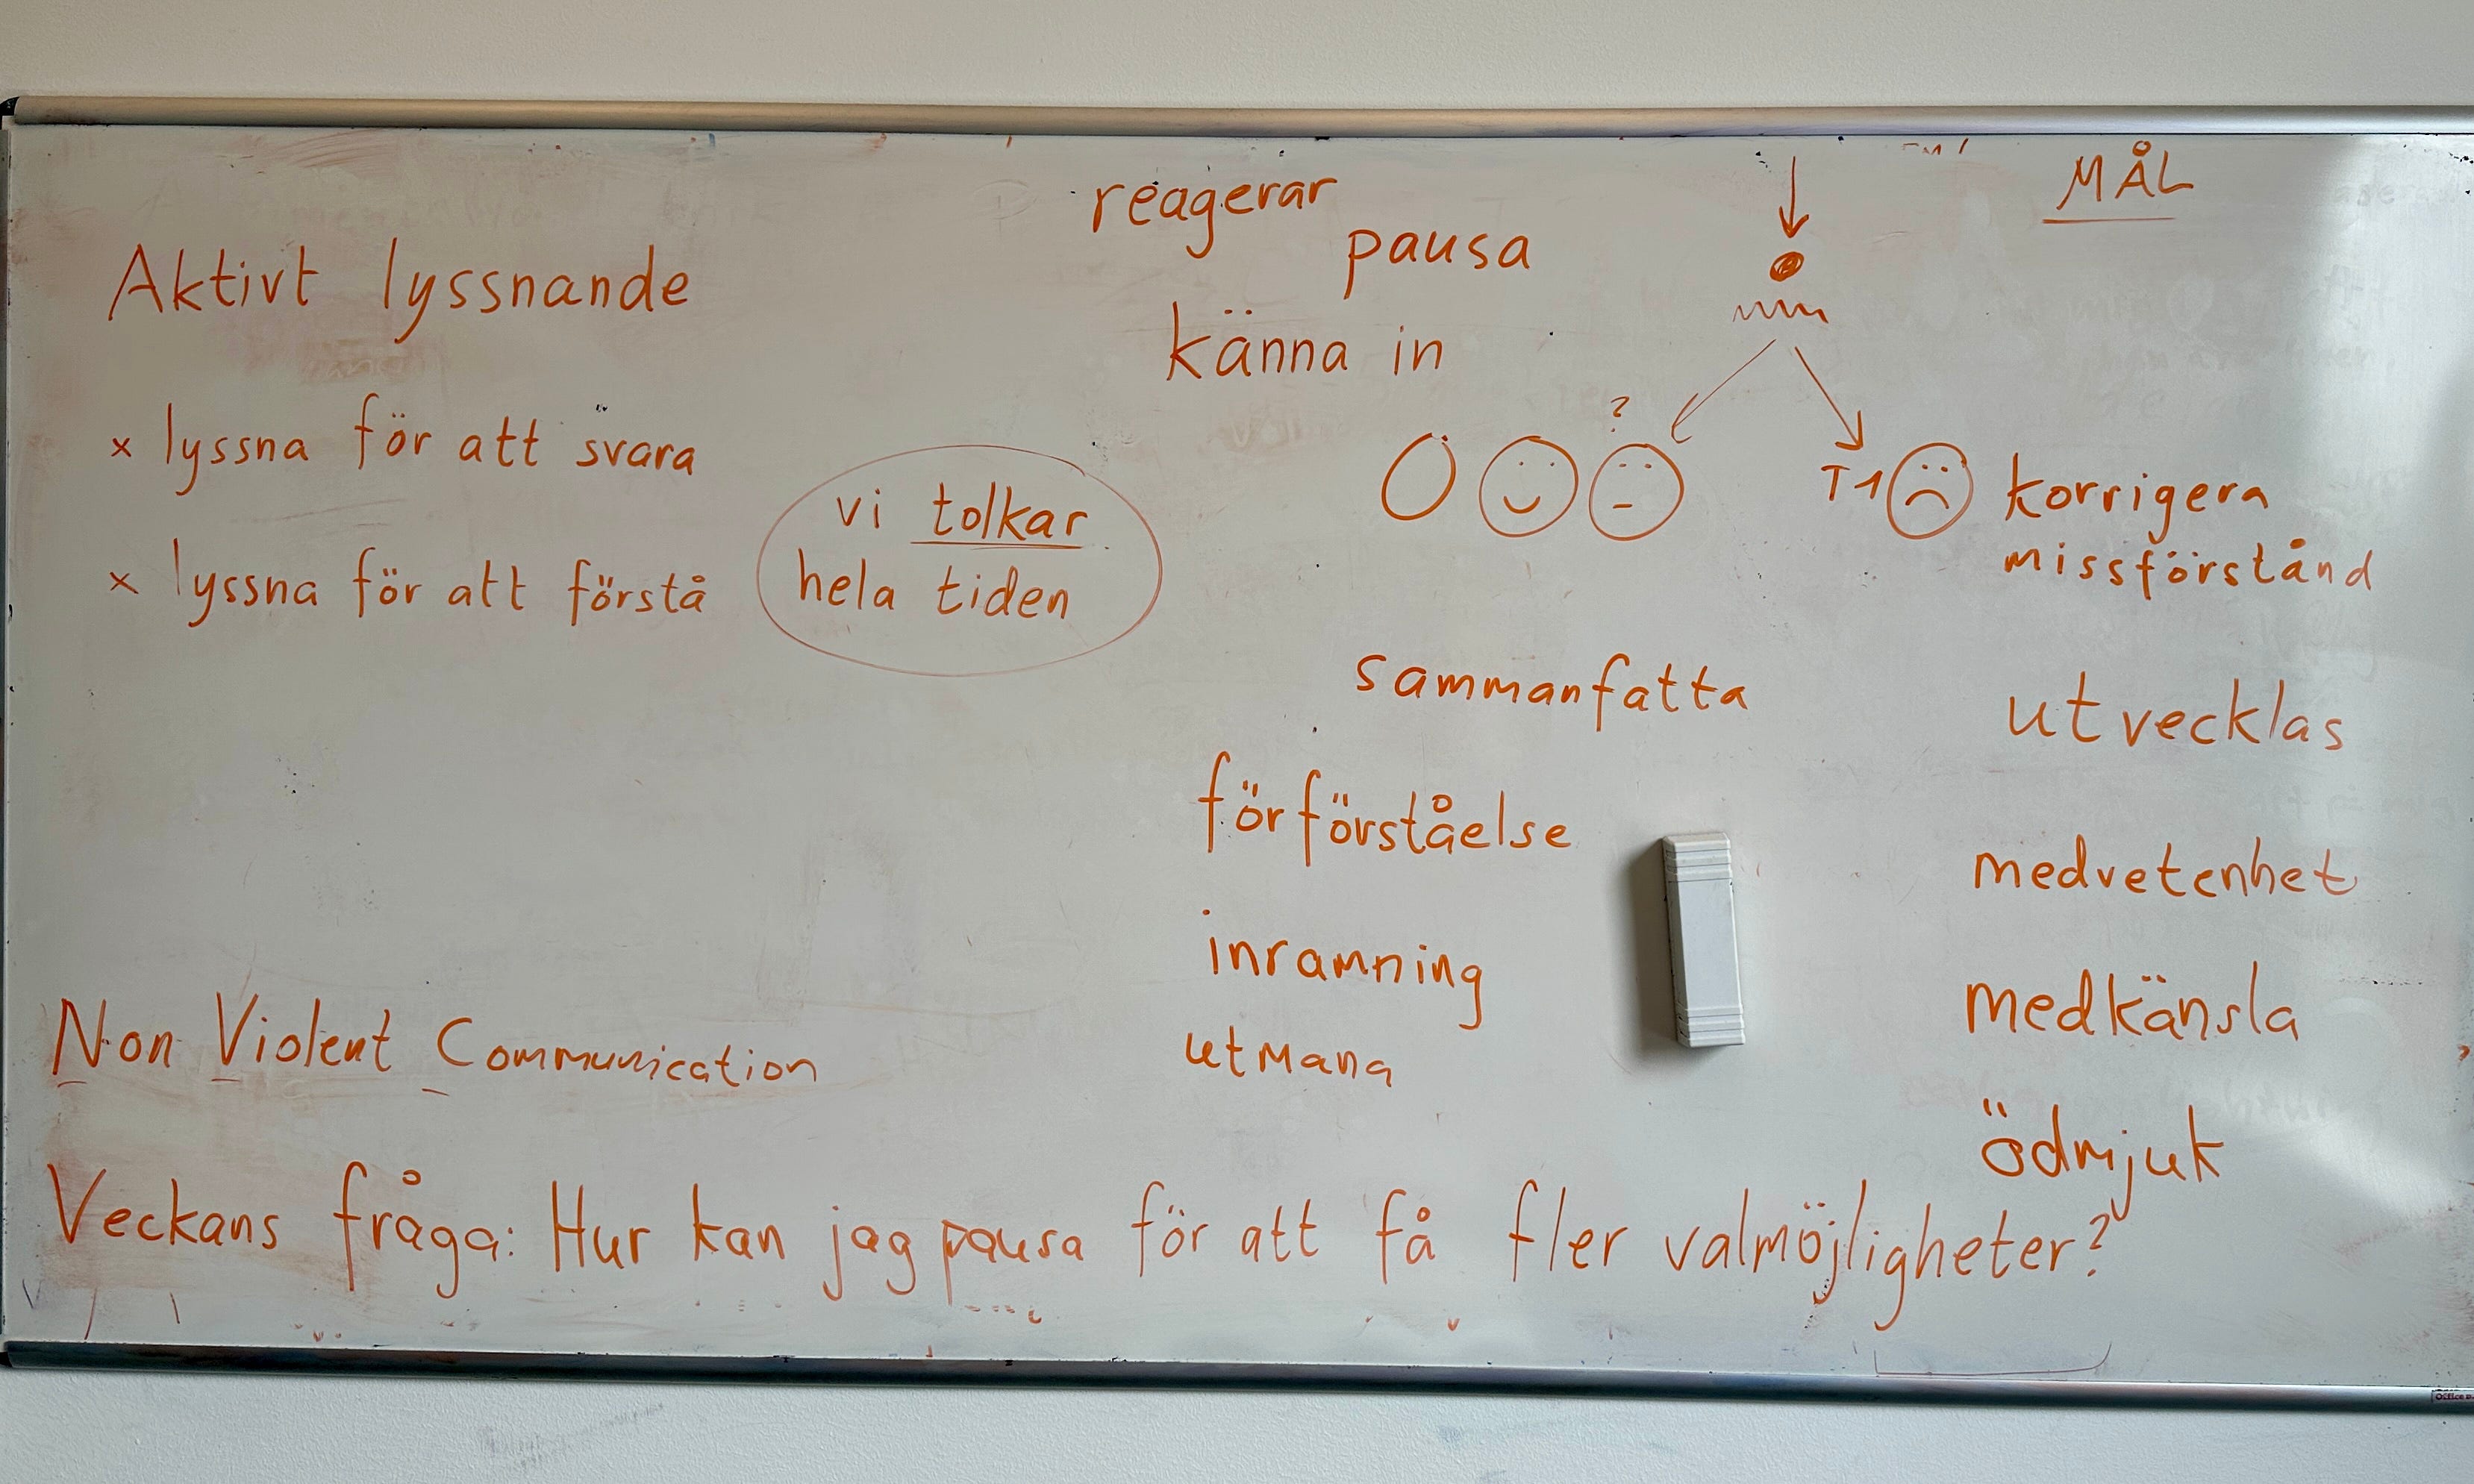 Aktivt lyssnande
x lyssna för att svara
x lyssna för att förstå
vi tolkar
hela tiden
reagerar
pausa
känna in
?
T1
MÅL
korrigera
missförstånd
sammanfatta
förförståelse
inramning
utmana
utvecklas
medvetenhet
medkänsla
ödmjuk
Non Violent Communication
Veckans fråga: Hur kan jag pausa för att få fler valmöjligheter?